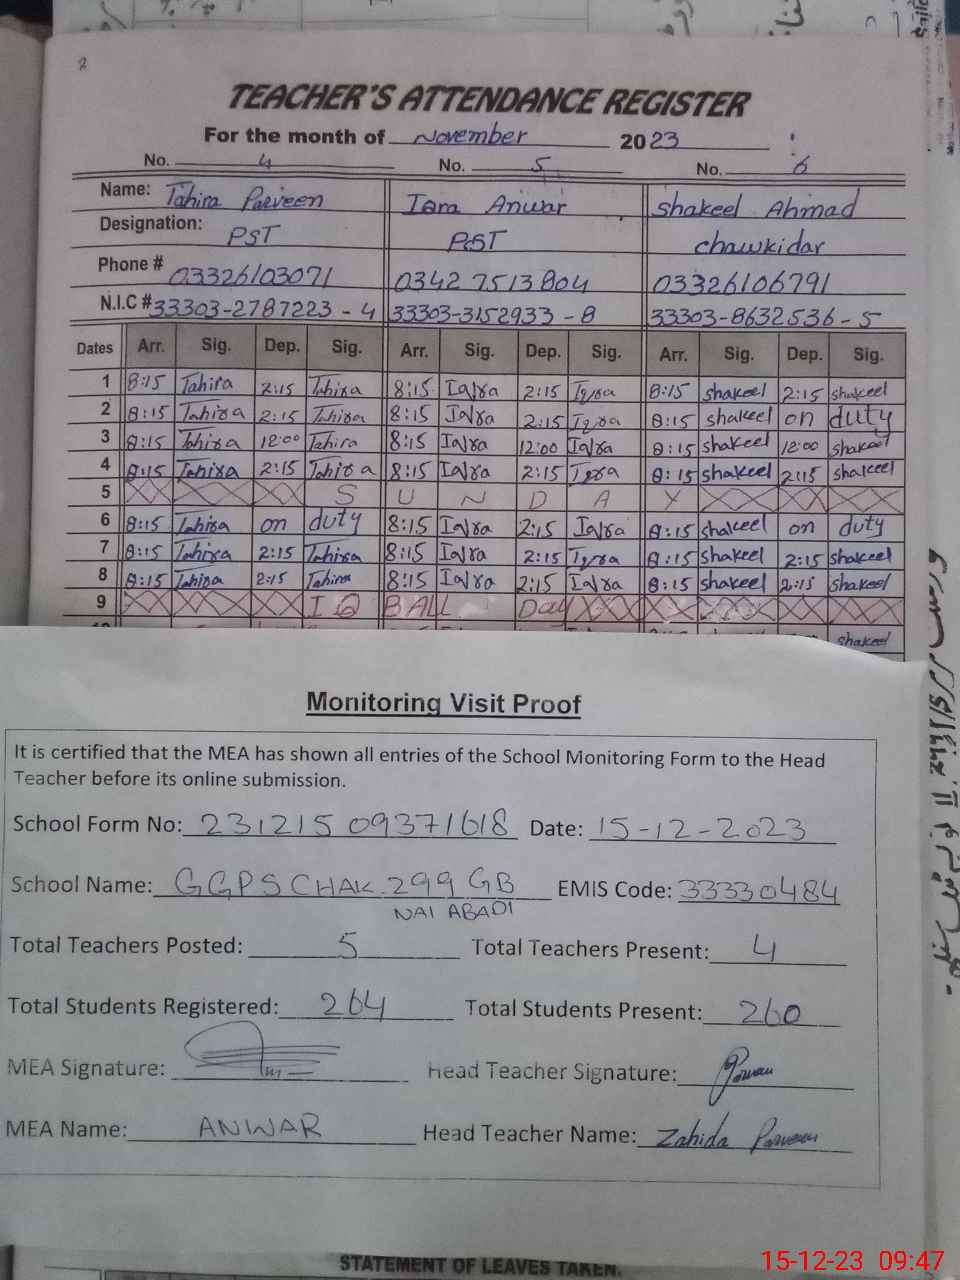 2
TEACHER'S ATTENDANCE REGISTER
For the month of November 2023
No. 4 No. 5 No. 6
Name: Tahira Parveen Iqra Anwar Shakeel Ahmad
Designation: PST PST chawkidar
Phone # 03326103071 0342 7513804 03326106791
N.I.C # 33303-2787223-4 33303-3152933-8 33303-8632536-5
Dates Arr. Sig. Dep. Sig. Arr. Sig. Dep. Sig. Arr. Sig. Dep. Sig.
1 8:15 Tahira 2:15 Tahira 8:15 Iqra 2:15 Iqra 8:15 shakeel 2:15 shakeel
2 8:15 Tahira 2:15 Tahira 8:15 Iqra 2:15 Iqra 8:15 shakeel on duty
3 8:15 Tahira 12:00 Tahira 8:15 Iqra 12:00 Iqra 8:15 shakeel 12:00 shakeel
4 8:15 Tahira 2:15 Tahira 8:15 Iqra 2:15 Iqra 8:15 shakeel 2:15 shakeel
5 S U N D A Y
6 8:15 Tahira on duty 8:15 Iqra 2:15 Iqra 8:15 shakeel on duty
7 8:15 Tahira 2:15 Tahira 8:15 Iqra 2:15 Iqra 8:15 shakeel 2:15 shakeel
8 8:15 Tahira 2:15 Tahira 8:15 Iqra 2:15 Iqra 8:15 shakeel 2:15 shakeel
9 IQBALL Day
shakeel
Monitoring Visit Proof
It is certified that the MEA has shown all entries of the School Monitoring Form to the Head
Teacher before its online submission.
School Form No: 231215 09371618 Date: 15-12-2023
School Name: GGPS CHAK 299 GB EMIS Code: 33330484
NAI ABADI
Total Teachers Posted: 5 Total Teachers Present: 4
Total Students Registered: 264 Total Students Present: 260
MEA Signature: Head Teacher Signature:
MEA Name: ANWAR Head Teacher Name: Zahida Parveen
STATEMENT OF LEAVES TAKEN.
15-12-23 09:47